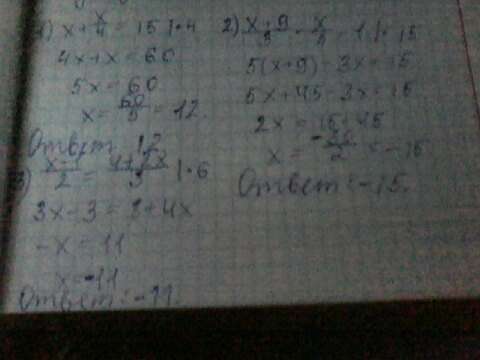 1) x + x/4 = 15 | · 4
4x + x = 60
5x = 60
x = 60/5 = 12.
Ответ 12
2) x+9/3 - x/5 = 1 | · 15
5(x+9) - 3x = 15
5x + 45 - 3x = 15
2x = 15 - 45
x = -30/2 = -15
Ответ: -15.
3) x-1/2 = 4+2x/3 | · 6
3x - 3 = 8 + 4x
-x = 11
x = -11
Ответ: -11.